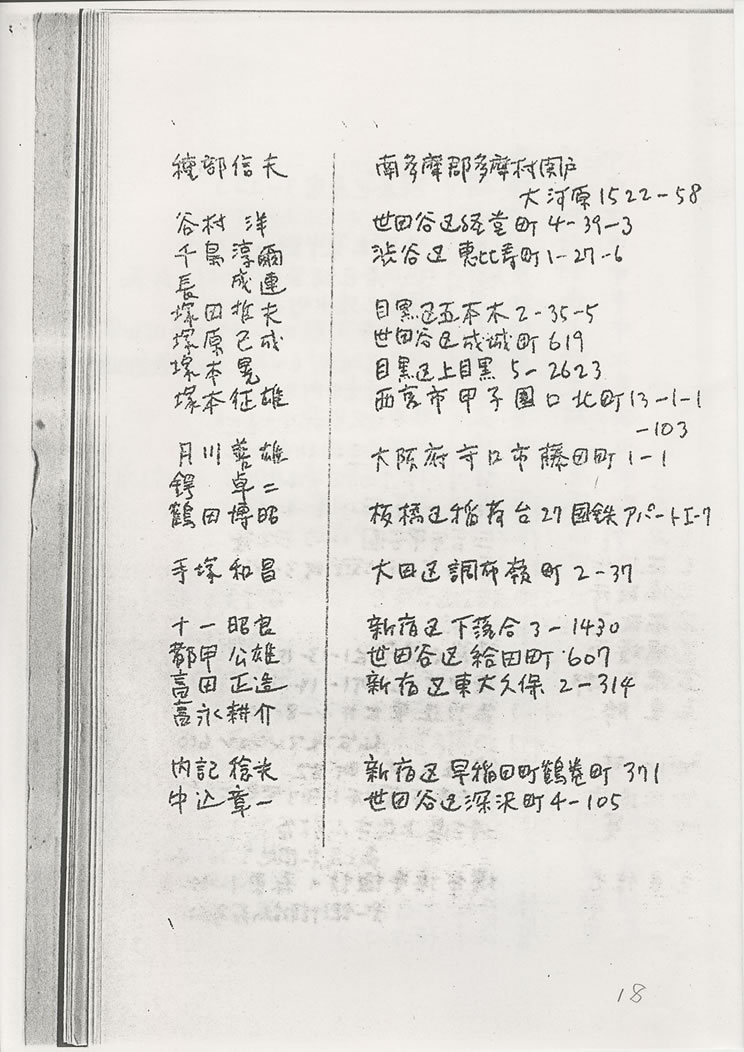 穐部信夫 南多摩郡多摩村関戸
大河原1522-58
谷村 洋 世田谷区経堂町4-39-3
千島淳爾 渋谷区恵比寿町1-27-6
長 成連
塚田哲夫 目黒区五本木2-35-5
塚原己成 世田谷区成城町619
塚本 晃 目黒区上目黒5-2623
塚本征雄 西宮市甲子園口北町13-1-1
-103
月川善雄 大阪府守口市藤田町1-1
鍔 卓二
鶴田博昭 板橋区稲荷台27国鉄アパートエ-7
手塚和昌 大田区調布嶺町2-37
十一昭良 新宿区下落合3-1430
都甲公雄 世田谷区給田町607
高田正造 新宿区東大久保2-314
高永耕介
内記 新宿区早稲田町鶴巻町371
中込章一 世田谷区深沢町4-105
18